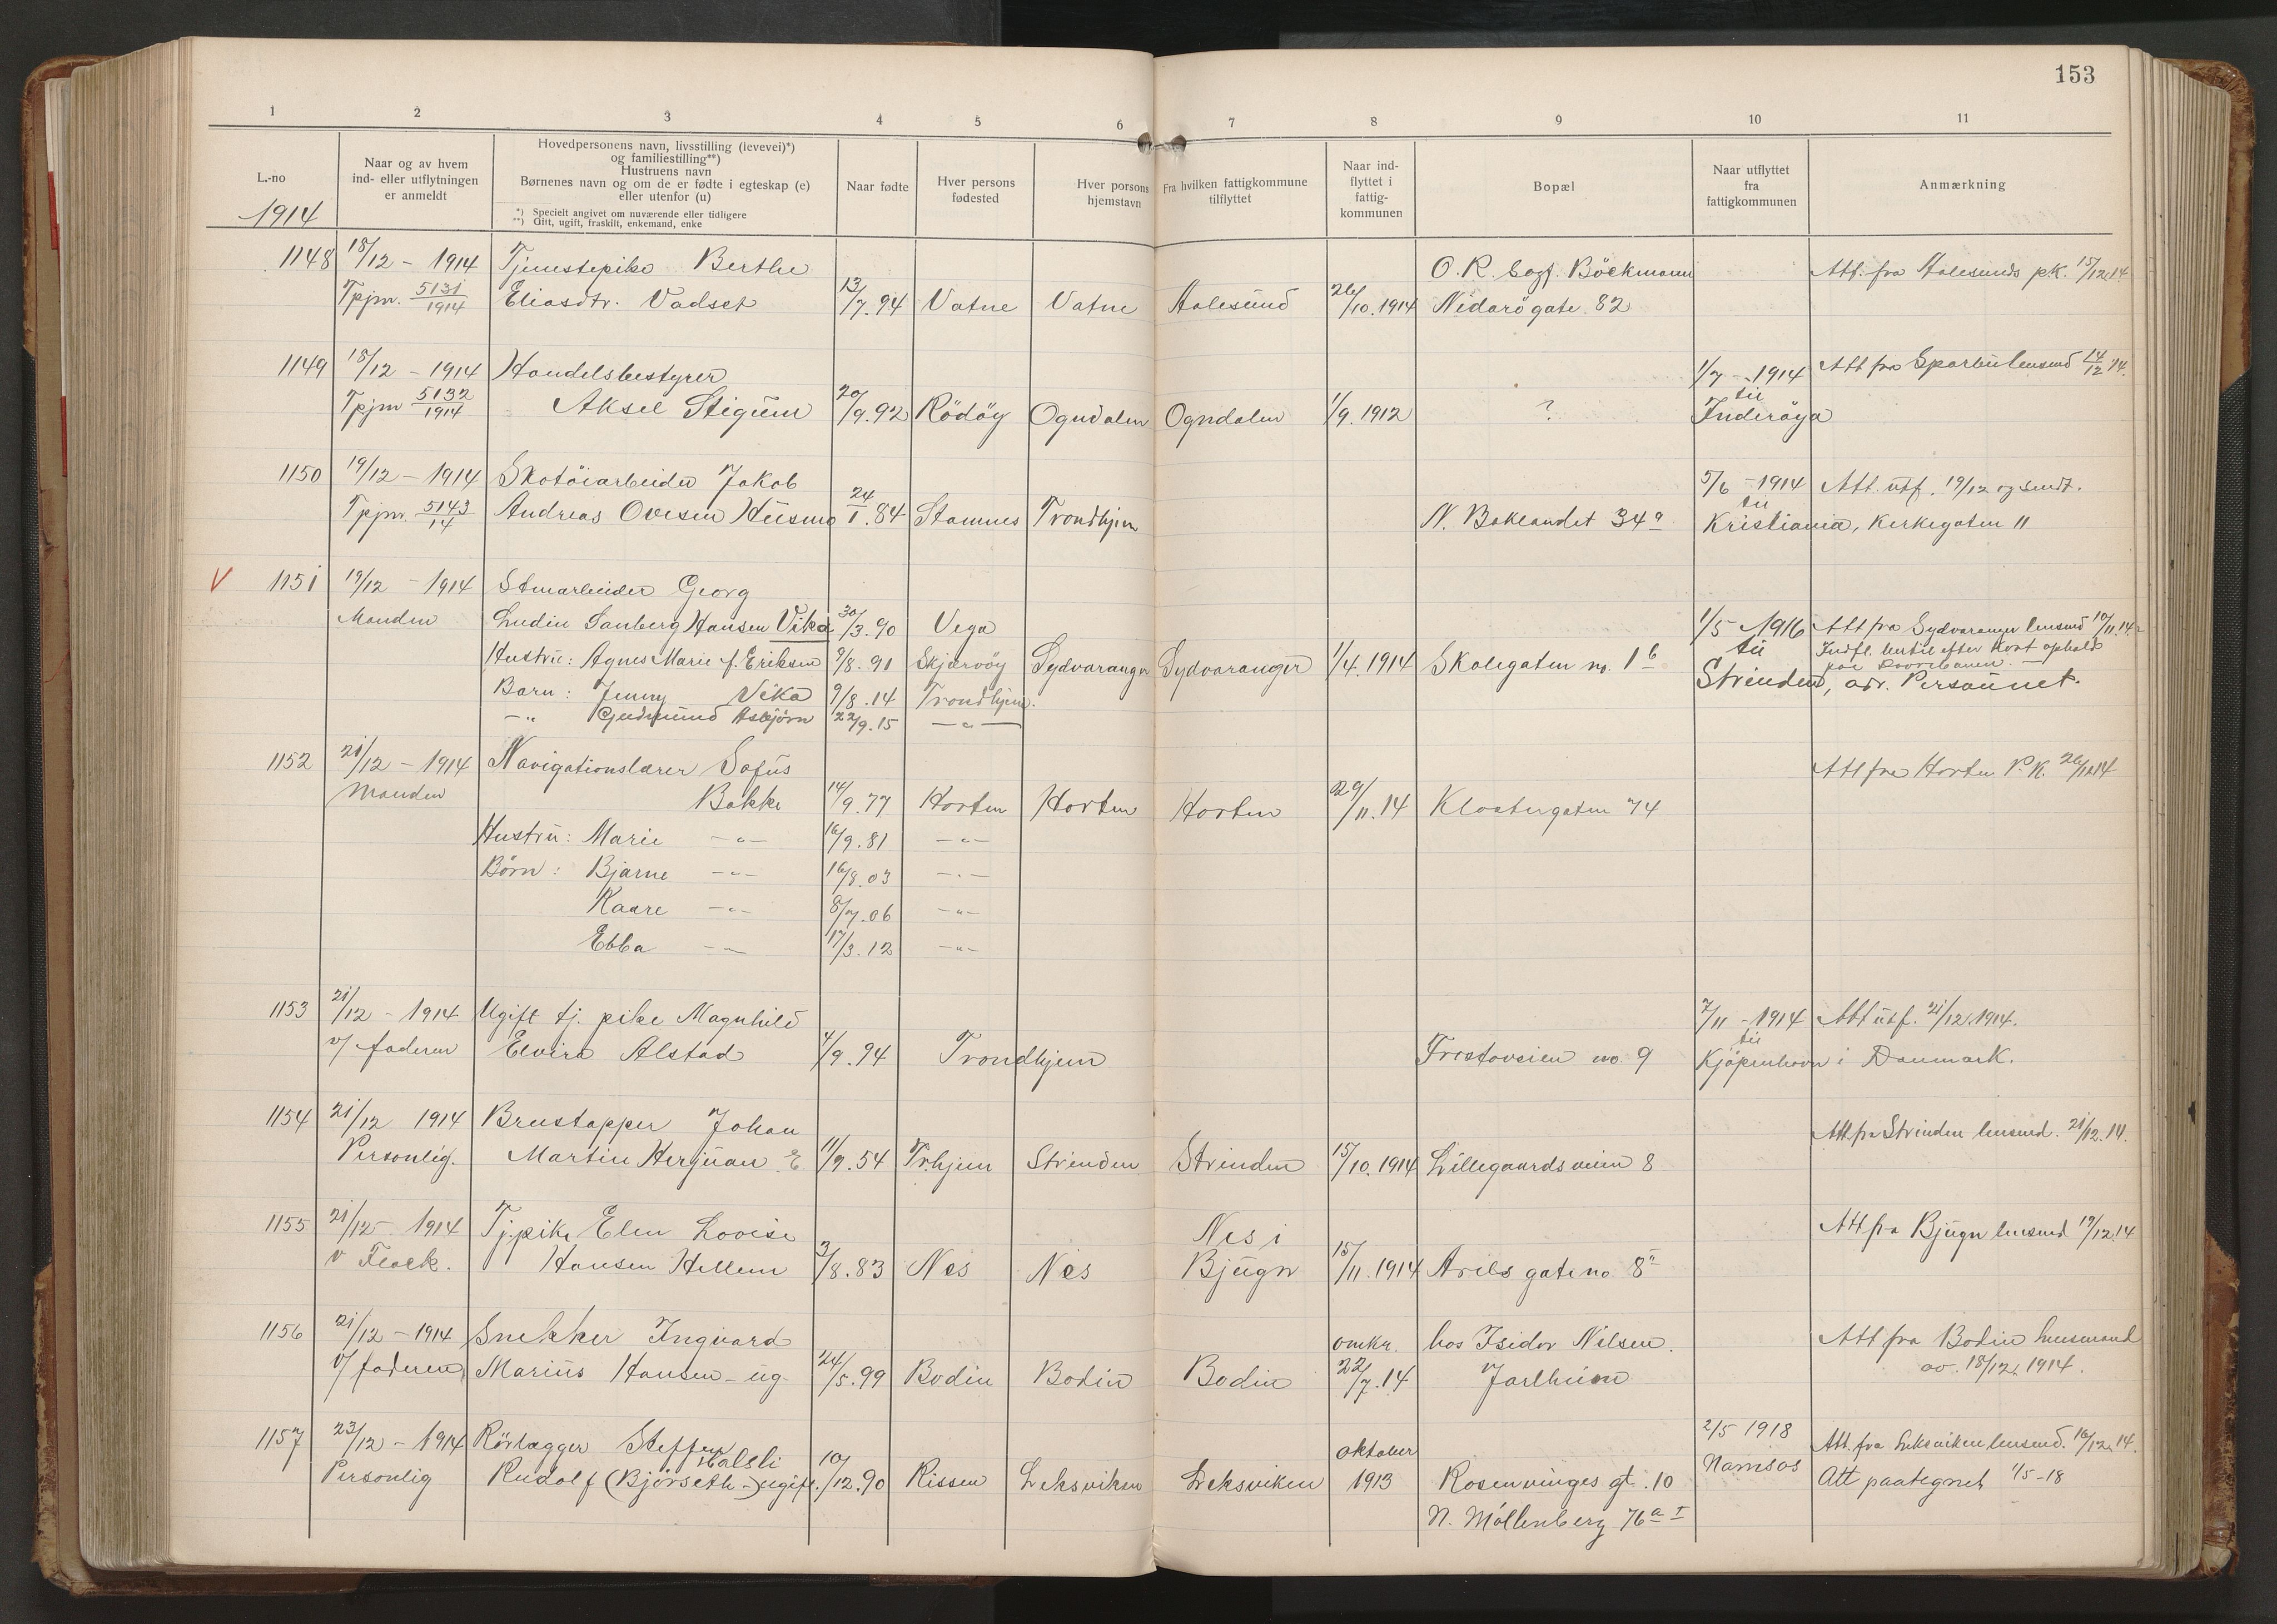 153
1 2 3 4 5 6 7 8 9 10 11
L.-no
1914
Naar og av hvem
ind- eller utflytningen
er anmeldt
Hovedpersonens navn, livsstilling (levevei)*)
og familiestilling**)
Hustruens navn
Børnenes navn og om de er fødte i egteskap (e)
eller utenfor (u)
*) Specielt angivet om nuværende eller tidligere
**) Gift, ugift, fraskilt, enkemand, enke
Naar fødte
Hver persons
fødested
Hver persons
hjemstavn
Fra hvilken fattigkommune
tilflyttet
Naar ind-
flyttet i
fattig-
kommunen
Bopæl
Naar utflyttet
fra
fattigkommunen
Anmærkning
1148 18/12 - 1914 Tjenestepike Berthe O. R. sagf. Böckmann Att. fra Aalesunds p.k. 15/12.14.
Tpjm. 5131/1914 Eliasdtr. Vadset 13/7.94 Vatne Vatne Aalesund 26/10.1914 Nidarögate 82
1149 18/12 - 1914 Handelsbestyrer 1/7 - 1914 Att fra Sparbu lensmd 14/12 14.
til
Tpjm 5132/1914 Aksel Stigum 20/9.92 Rödöy Ogndalen Ogndalen 1/9.1912 ? Inderöya
1150 19/12 - 1914 Skotöiarbeider Jakob 5/6 - 1914 Att. utf. 19/12 og sendt.
til
Tpjm. 5143/14 Andreas Ovesen Husmo 24/1.84 Stamnes Trondhjem N. Baklandet 34a Kristiania, Kirkegaten 11
V 1151 19/12 - 1914 Stenarbeider Georg
Manden Ludin Sanberg Hansen Vika 30/3.90 Vega 1/5 1916 Att fra Sydvaranger lensmd 10/11.14.
til
Hustru: Agnes Marie f. Eriksen 9/8.91 Skjærvöy Sydvaranger Sydvaranger 1/4.1914 Skolegaten no. 1b Indfl. hertil efter kort ophold
paa Dovrebanen.
Barn: Jenny Vika 9/8.14 Trondhjem. Strinden, adr. Persaunet.
-"- Gudmund Asbjörn 22/9.15 -"-
1152 21/12 - 1914 Navigationslærer Sofus Att fra Horten P.K. 26/12 14
Manden Bakke 14/9.77 Horten Horten Horten 29/11.14 Klostergaten 74
Hustru: Marie -"- 16/9.81 -"-
Börn: Bjarne -"- 16/8.03 -"-
Kaare -"- 8/7.06 -"-
Ebba -"- 17/3.12 -"-
1153 21/12 - 1914 Ugift tj. pike Magnhild 7/11 - 1914 Att utf. 21/12.1914.
til
v/ faderen Elvira Alstad 4/9.94 Trondhjem Frostaveien no. 9 Kjöpenhavn i Danmark.
1154 21/12 1914 Brustapper Johan Att fra Strinden lensmd. 21/12.14.
Personlig. Martin Herjuan E 11/9.54 Tr.hjem Strinden Strinden 15/10.1914 Lillegaardsveien 8
1155 21/12 - 1914 Tj.pike Elen Lovise Nes i Att fra Bjugn lensmd 19/12.14
v Flack. Hansen Hellem 3/8.83 Nes Nes Bjugn 15/11.1914 Arils gate no 8II
1156 21/12 - 1914 Snekker Ingvard omkr. hos Isidor Nilsen. Att fra Bodin lensmand
v/ faderen Marius Hansen - ug 24/5.99 Bodin Bodin Bodin 22/7.14 Jarlheim av. 18/12.1914.
1157 23/12 - 1914 Rörlægger Steffen oktober 2/5 1918 Att. fra Leksviken lensmd. 16/12.14.
Halsli
Personlig Rudolf (Björseth-) ugift. 10/12.90 Rissen Leksviken Leksviken 1913 Rosenvinges gt. 10 Namsos Att paategnet 1/5-18
N. Möllenberg 76a I